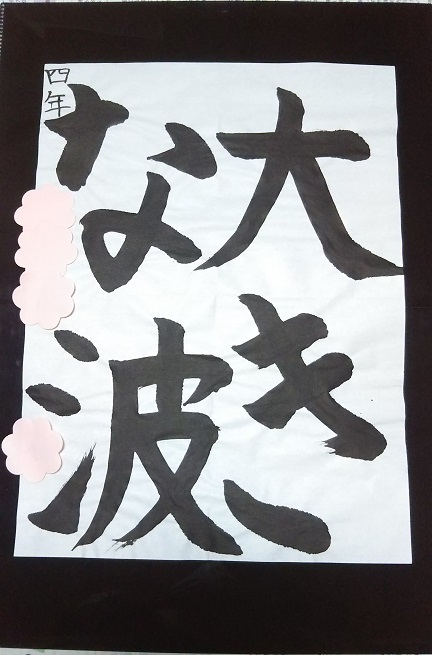 大き
な波
四年